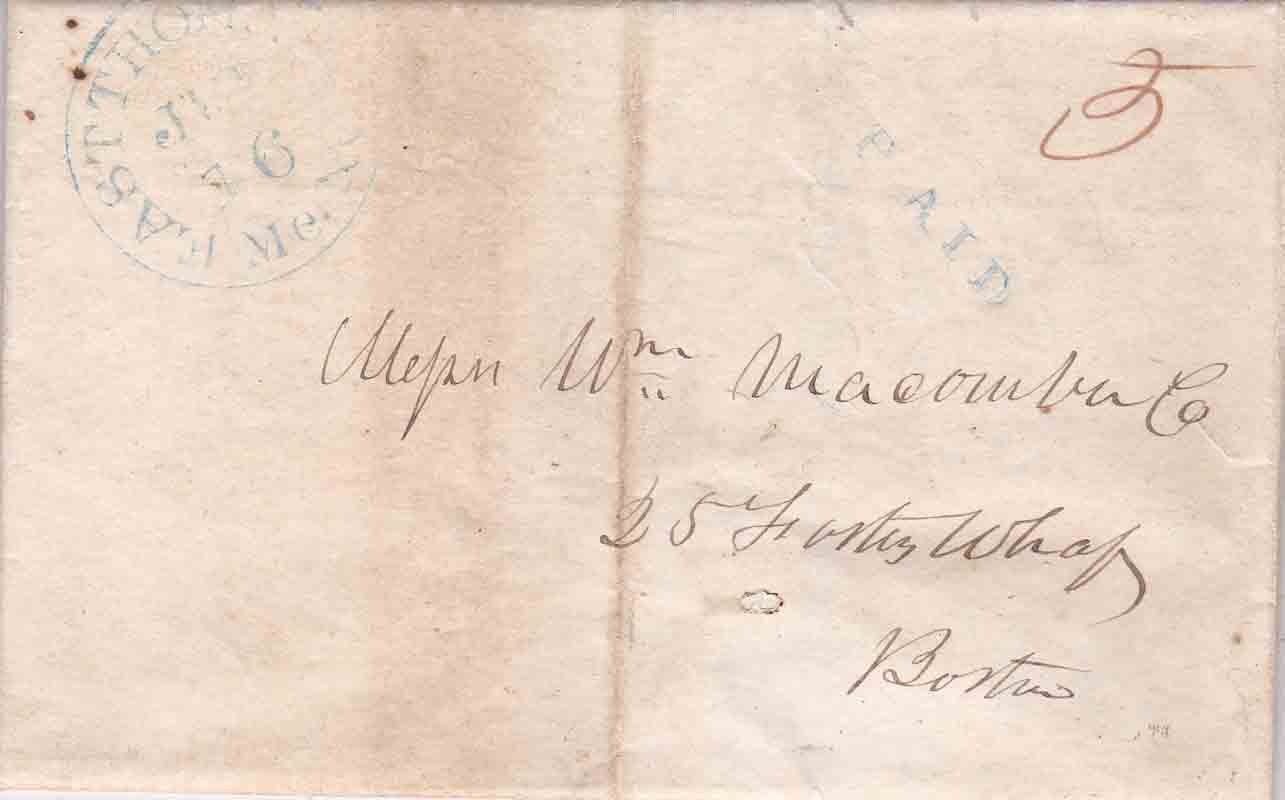 EAST THOMA
Me.
16
PAID
5
Messrs Wm Macomber Co
25 Fosters Wharf
Boston